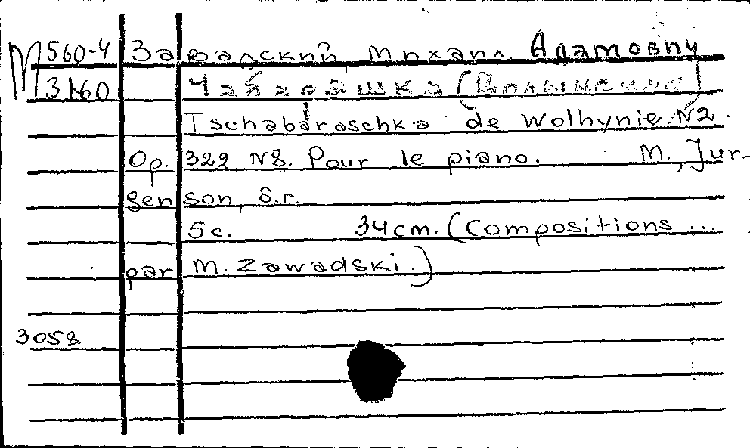 М 560-4 Завадский, Михаил Адамович
3160 Чабарашка (Волынская)
Tschabaraschka de Wolhynie. N2.
Op. 322 N8. Pour le piano. M., Jur-
genson, s.r.
5c. 34cm. (Compositions ...
par M. Zawadski.)
3058